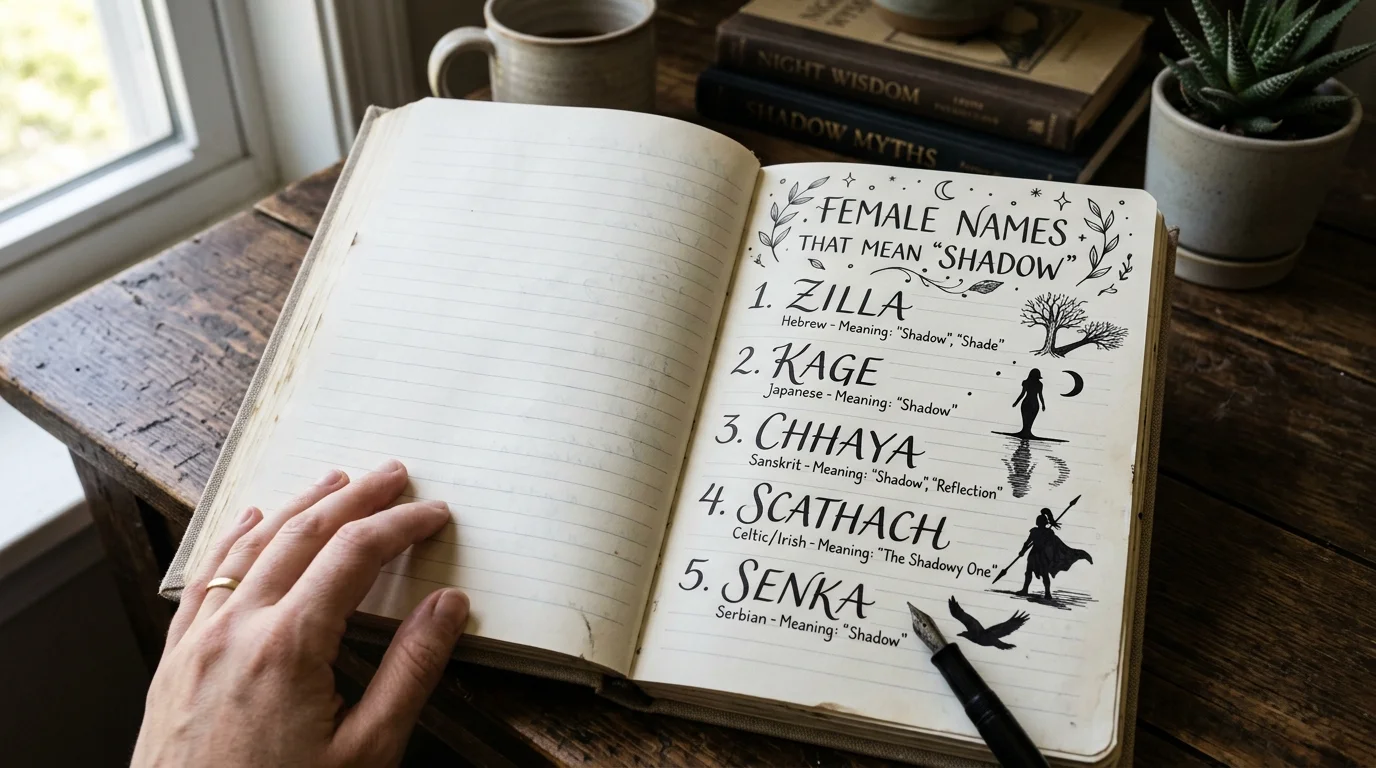 NIGHT WISDOM
SHADOW MYTHS
FEMALE NAMES
THAT MEAN "SHADOW"
1. ZILLA
Hebrew - Meaning: "Shadow", "Shade"
2. KAGE
Japanese - Meaning: "Shadow"
3. CHHAYA
Sanskrit - Meaning: "Shadow", "Reflection"
4. SCATHACH
Celtic/Irish - Meaning: "The Shadowy One"
5. SENKA
Serbian - Meaning: "Shadow"